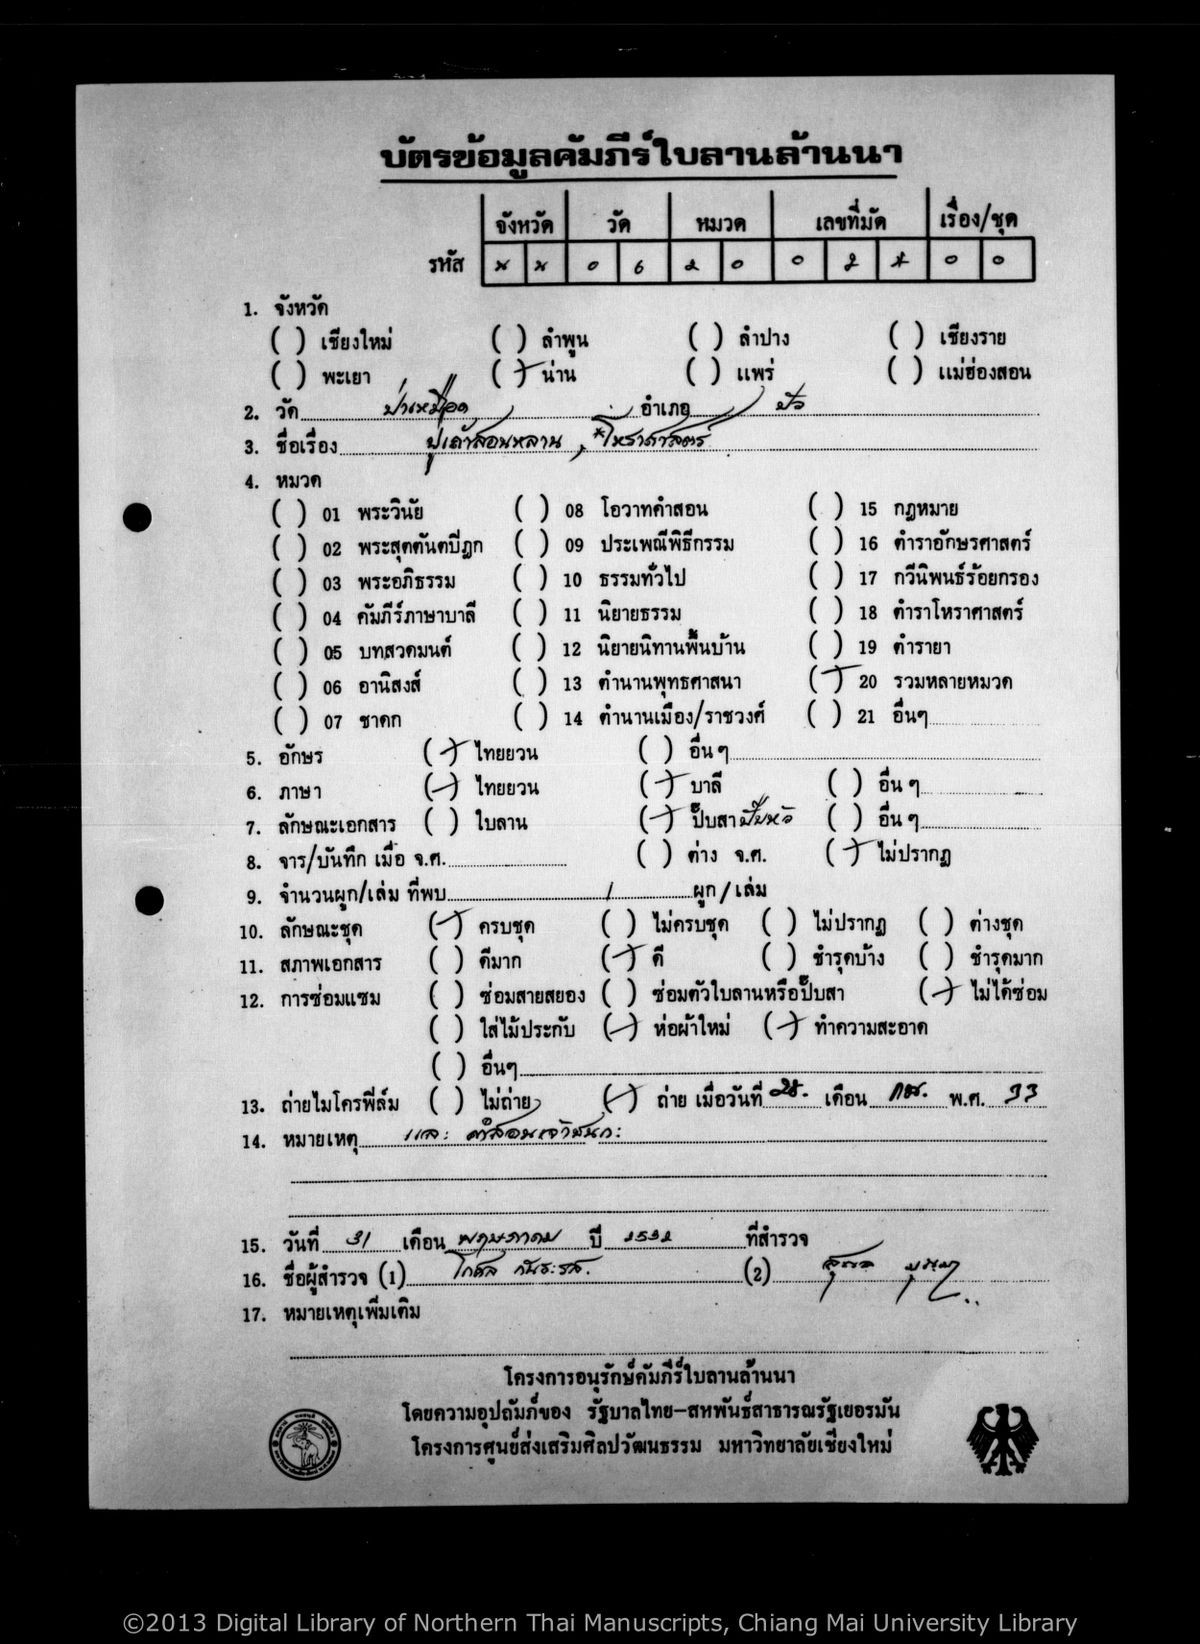 บัตรข้อมูลคัมภีร์ใบลานล้านนา
จังหวัด วัด หมวด เลขที่มัด เรื่อง/ชุด
รหัส น น 0 6 2 0 0 2 * 0 0
1. จังหวัด
( ) เชียงใหม่ ( ) ลำพูน ( ) ลำปาง ( ) เชียงราย
( ) พะเยา (/) น่าน ( ) แพร่ ( ) แม่ฮ่องสอน
2. วัด ป่าเหมือด อำเภอ ปัว
3. ชื่อเรื่อง ปู่เถ้าสอนหลาน, *โหราศาสตร์
4. หมวด
( ) 01 พระวินัย ( ) 08 โอวาทคำสอน ( ) 15 กฎหมาย
( ) 02 พระสุตตันตปิฎก ( ) 09 ประเพณีพิธีกรรม ( ) 16 ตำราอักษรศาสตร์
( ) 03 พระอภิธรรม ( ) 10 ธรรมทั่วไป ( ) 17 กวีนิพนธ์ร้อยกรอง
( ) 04 คัมภีร์ภาษาบาลี ( ) 11 นิยายธรรม ( ) 18 ตำราโหราศาสตร์
( ) 05 บทสวดมนต์ ( ) 12 นิยายนิทานพื้นบ้าน ( ) 19 ตำรายา
( ) 06 อานิสงส์ ( ) 13 ตำนานพุทธศาสนา (/) 20 รวมหลายหมวด
( ) 07 ชาดก ( ) 14 ตำนานเมือง/ราชวงศ์ ( ) 21 อื่นๆ
5. อักษร (/) ไทยยวน ( ) อื่นๆ
6. ภาษา (/) ไทยยวน (/) บาลี ( ) อื่นๆ
7. ลักษณะเอกสาร ( ) ใบลาน (/) ปั๊บสา ปั๊บหัว ( ) อื่นๆ
8. จาร/บันทึก เมื่อ จ.ศ. ( ) ต่าง จ.ศ. (/) ไม่ปรากฏ
9. จำนวนผูก/เล่ม ที่พบ 1 ผูก/เล่ม
10. ลักษณะชุด (/) ครบชุด ( ) ไม่ครบชุด ( ) ไม่ปรากฏ ( ) ต่างชุด
11. สภาพเอกสาร ( ) ดีมาก (/) ดี ( ) ชำรุดบ้าง ( ) ชำรุดมาก
12. การซ่อมแซม ( ) ซ่อมสายสยอง ( ) ซ่อมตัวใบลานหรือปั๊บสา (/) ไม่ได้ซ่อม
( ) ใส่ไม้ประกับ (/) ห่อผ้าใหม่ (/) ทำความสะอาด
( ) อื่นๆ
13. ถ่ายไมโครฟิล์ม ( ) ไม่ถ่าย (/) ถ่าย เมื่อวันที่ 28. เดือน กย. พ.ศ. 33
14. หมายเหตุ และ คำสอนเจ้าชนกะ
15. วันที่ 31 เดือน พฤษภาคม ปี 2532 ที่สำรวจ
16. ชื่อผู้สำรวจ (1) (2)
17. หมายเหตุเพิ่มเติม
โครงการอนุรักษ์คัมภีร์ใบลานล้านนา
โดยความอุปถัมภ์ของ รัฐบาลไทย-สหพันธ์สาธารณรัฐเยอรมัน
โครงการศูนย์ส่งเสริมศิลปวัฒนธรรม มหาวิทยาลัยเชียงใหม่
©2013 Digital Library of Northern Thai Manuscripts, Chiang Mai University Library